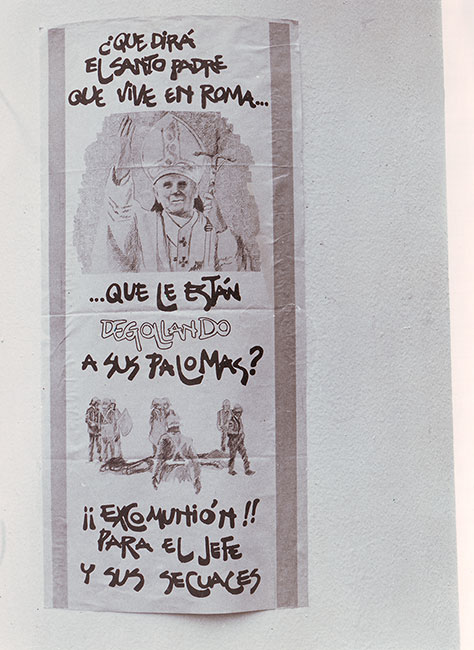 ¿QUE DIRÁ
EL SANTO PADRE
QUE VIVE EN ROMA...
...QUE LE ESTÁN
DEGOLLANDO
A SUS PALOMAS?
¡¡EXCOMUNIÓN!!
PARA EL JEFE
Y SUS SECUACES